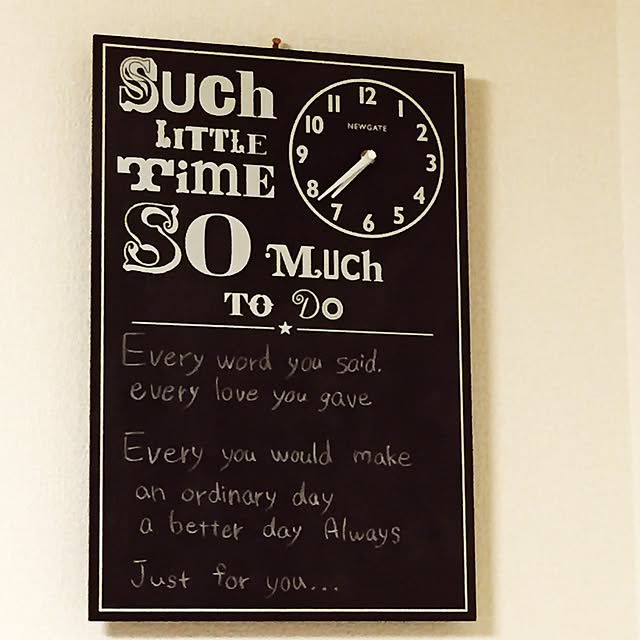 Such
Little
Time
So Much
To Do
12
1
2
3
4
5
6
7
8
9
10
11
NEWGATE
Every word you said.
every love you gave
Every you would make
an ordinary day
a better day Always
Just for you...